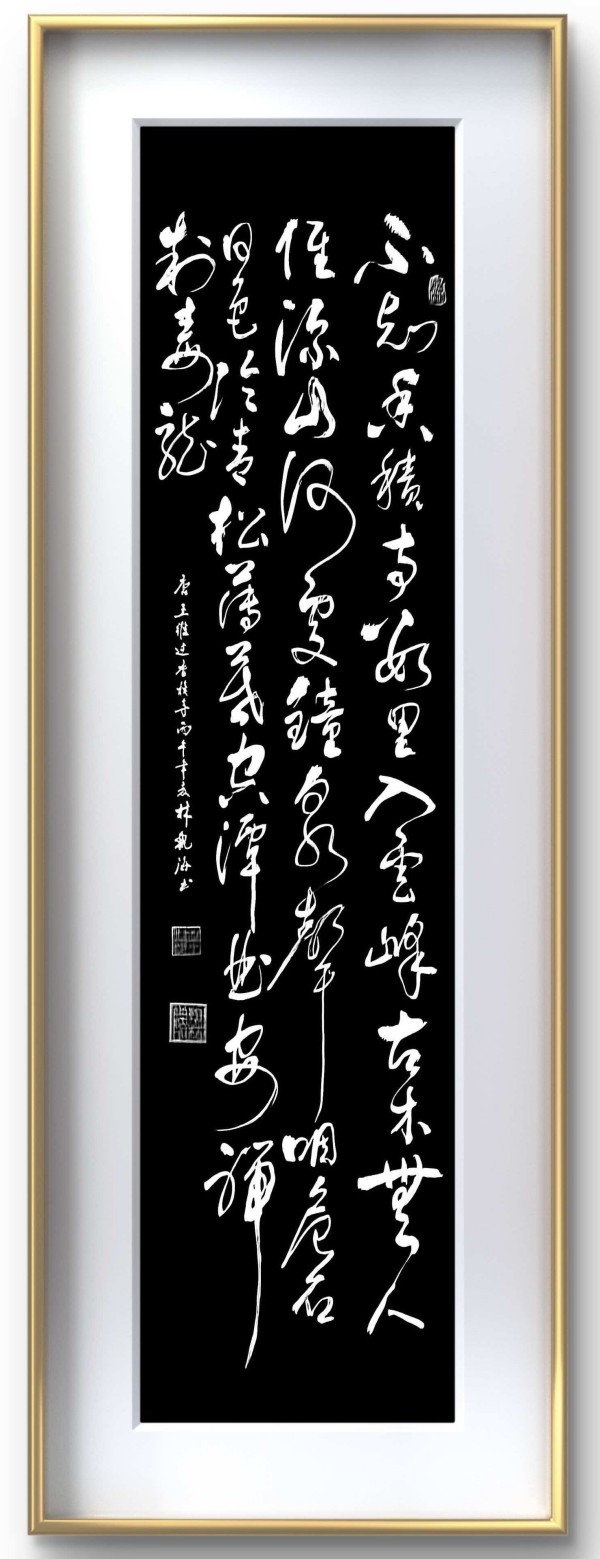 不知香積寺数里入雲峰古木無人
徑深山何處鐘泉聲咽危石
日色冷青松薄暮空潭曲安禪
制毒龍
唐王維过香積寺丙午年夏林觀海书